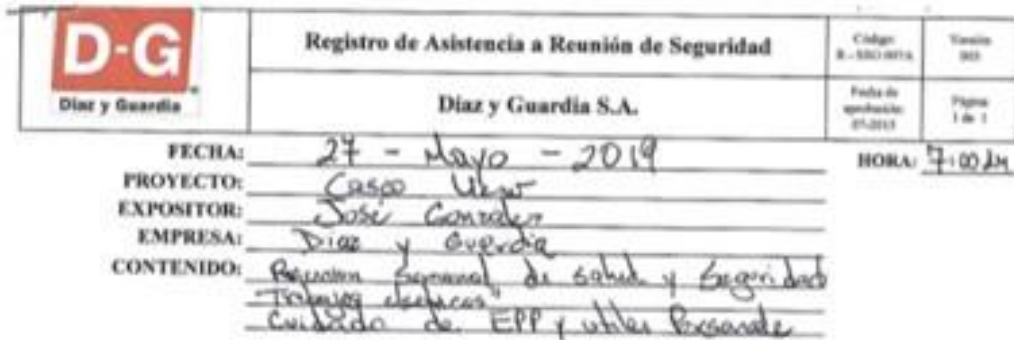 D-G
Díaz y Guardia
Registro de Asistencia a Reunión de Seguridad
Díaz y Guardia S.A.
Código:
Versión
Fecha de
aprobación:
07-2015
Página
1 de 1
FECHA: 27 - Mayo - 2019
HORA: 7:00 AM
PROYECTO: Casco
EXPOSITOR: José Gonzalez
EMPRESA: Diaz y Guardia
CONTENIDO: Reunion Semanal de Salud y Seguridad
Trabajos
Cuidado de EPP y utiles Personale